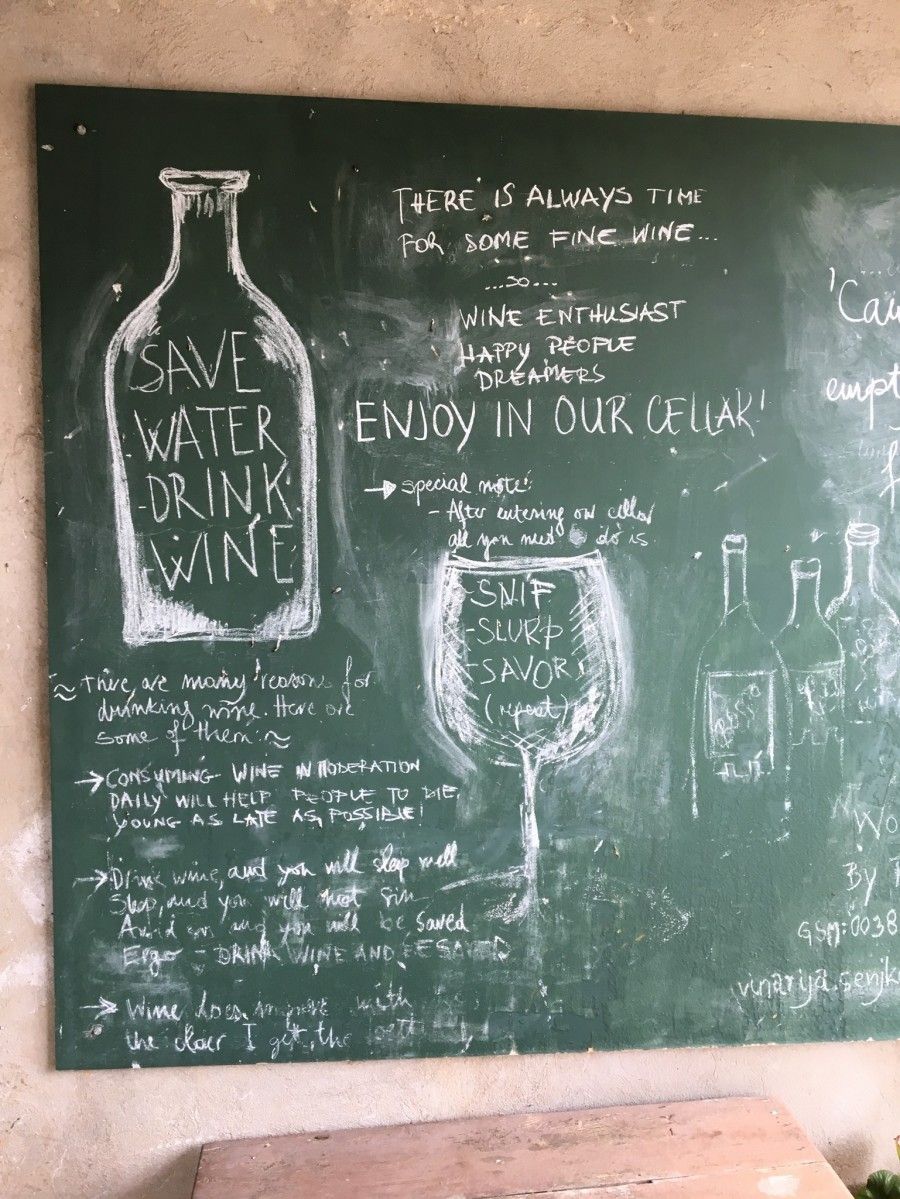 SAVE
WATER
DRINK
WINE
THERE IS ALWAYS TIME
FOR SOME FINE WINE...
...so...
WINE ENTHUSIAST
HAPPY PEOPLE
DREAMERS
ENJOY IN OUR CELLAR!
→ special note:
- After entering our cellar
all you need to do is
-SNIF
-SLURP
-SAVOR
(repeat)
~ There are many reasons for
drinking wine. Here are
some of them: ~
→ CONSUMING WINE IN MODERATION
DAILY WILL HELP PEOPLE TO DIE
YOUNG AS LATE AS POSSIBLE!
→ Drink wine, and you will sleep well
Sleep, and you will not sin
Avoid sin and you will be saved
Ergo - DRINK WINE AND BE SAVED
→ Wine does improve with
the older I get, the
'Cau
empt
Wo
By
GSM: 0038
vinarija.senjko